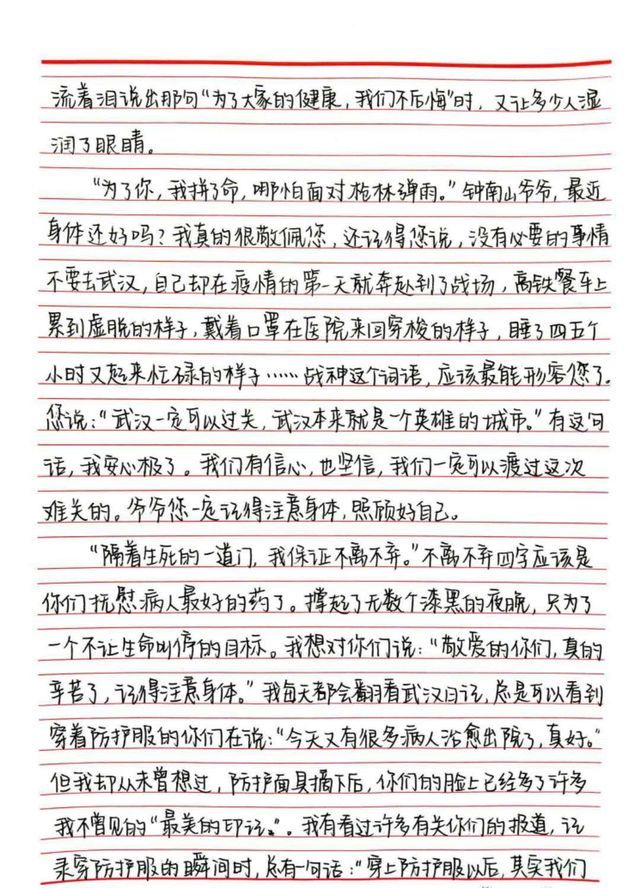 流着泪说出那句“为了大家的健康，我们不后悔”时，又让多少人湿
润了眼睛。
“为了你，我拼了命，哪怕面对枪林弹雨。”钟南山爷爷，最近
身体还好吗？我真的很敬佩您，还记得您说，没有必要的事情
不要去武汉，自己却在疫情的第一天就奔赴到了战场，高铁餐车上
累到虚脱的样子，戴着口罩在医院来回穿梭的样子，睡了四五个
小时又起来忙碌的样子……战神这个词语，应该最能形容您了。
您说：“武汉一定可以过关，武汉本来就是一个英雄的城市。”有这句
话，我安心极了。我们有信心，也坚信，我们一定可以渡过这次
难关的。爷爷您一定记得注意身体，照顾好自己。
“隔着生死的一道门，我保证不离不弃。”不离不弃四字应该是
你们抚慰病人最好的药了。撑起了无数个漆黑的夜晚，只为了
一个不让生命叫停的目标。我想对你们说：“敬爱的你们，真的
辛苦了，记得注意身体。”我每天都会翻看武汉日记，总是可以看到
穿着防护服的你们在说：“今天又有很多病人治愈出院了，真好。”
但我却从未曾想过，防护面具摘下后，你们的脸上已经多了许多
我不曾见的“最美的印记”。我有看过许多有关你们的报道，记
录穿防护服的瞬间时，总有一句话：“穿上防护服以后，其实我们